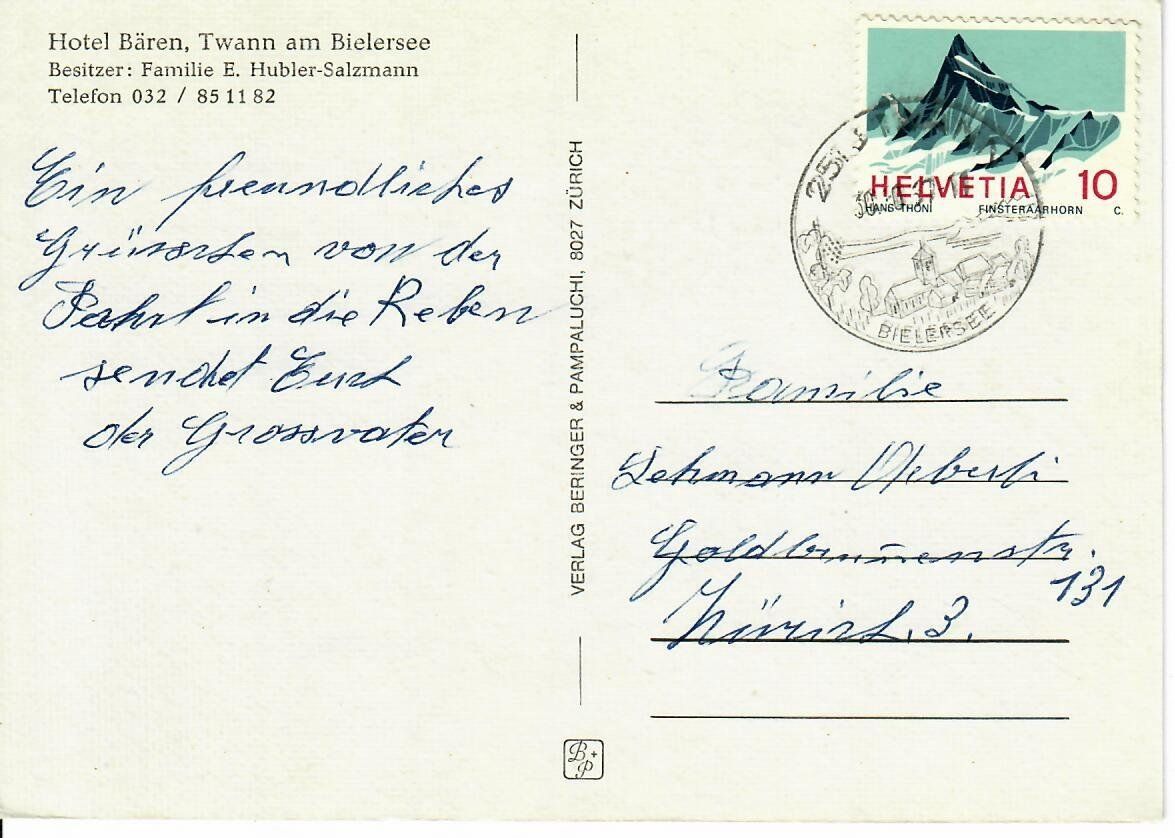 Hotel Bären, Twann am Bielersee
Besitzer: Familie E. Hubler-Salzmann
Telefon 032 / 85 11 82
Ein freundliches
Grüsschen von der
Fahrt in die Reben
sendet Euch
der Grossvater
VERLAG BERINGER & PAMPALUCHI, 8027 ZÜRICH
B+P
HELVETIA 10
HANS THÖNI FINSTERAARHORN C.
TWANN
BIELERSEE
Familie
Lehmann
Goldbrunnenstr.
131
Zürich. 3.